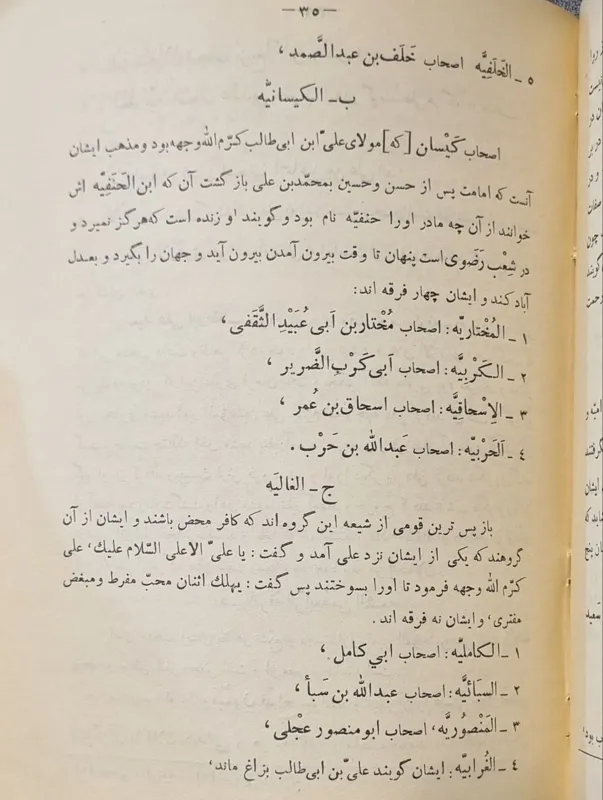 -۳۵-
۵ ـ الخَلَفِیَّه اصحاب خَلَف بن عبد الصَّمد ،
ب ـ الکیسانیّه
اصحاب کَیْسان [که] مولای علیّ ابن ابی طالب کرّم الله وجهه بود ومذهب ایشان
آنست که امامت پس از حسن وحسین بمحمّد بن علی باز گشت آن که ابن الحَنَفِیّه اش
خوانند از آن چه مادر اورا حنفیّه نام بود و گویند او زنده است که هرگز نمیرد و
در شِعْب رَضَوی است پنهان تا وقت بیرون آمدن بیرون آید و جهان را بگیرد و بعدل
آباد کند و ایشان چهار فرقه اند:
۱ ـ المُخْتاریّه : اصحاب مُخْتار بن اَبی عُبَیْدِ الثَّقَفی ،
۲ ـ الکَرْبِیَّه : اصحاب اَبی کَرْبِ الضَّریر ،
۳ ـ الاِسْحاقِیَّه : اصحاب اسحاق بن عُمر ،
٤ ـ اَلحَرْبِیّه : اصحاب عَبدالله بن حَرْب .
ج ـ الغالیَه
باز پس ترین قومی از شیعه این گروه اند که کافر محض باشند و ایشان از آن
گروهند که یکی از ایشان نزد علی آمد و گفت : یا علیّ الاعلی السّلام علیك، علی
کرّم الله وجهه فرمود تا اورا بسوختند پس گفت : یهلك اثنان محبّ مفرط ومبغض
مفتری، و ایشان نه فرقه اند .
۱ ـ الکاملیّه : اصحاب ابی کامل ،
۲ ـ السبَائیَّه : اصحاب عبدالله بن سَبأ ،
۳ ـ المَنْصُوریَّه ، اصحاب ابو منصور عجْلی ،
٤ ـ الغُرابیَّه : ایشان گویند علیّ بن ابی طالب بزاغ ماند،